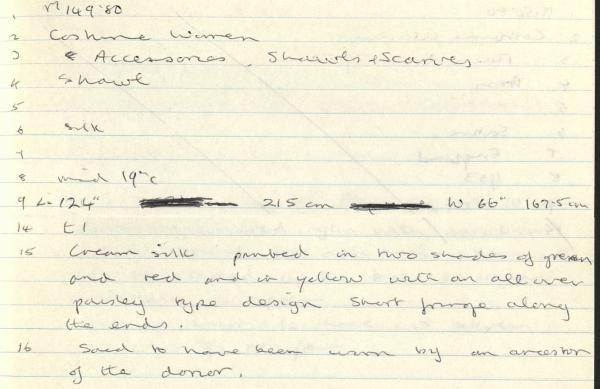 1 M149'80
2 Costume Women
3 & Accessories, Shawls & Scarves
4 Shawl
5
6 silk
7
8 mid 19thc
9 L. 124" 215 cm W 66" 167.5cm
14 E1
15 Cream silk printed in two shades of green
and red and in yellow with an all over
paisley type design Short fringe along
the ends.
16 Said to have been worn by an ancestor
of the donor.